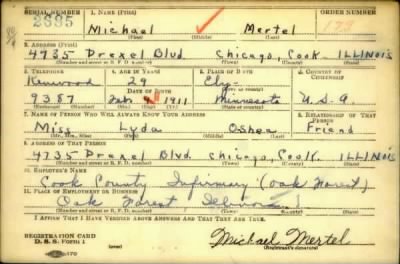 SERIAL NUMBER 1. NAME (Print) ORDER NUMBER
2895 Michael Mertel 173
(First) (Middle) (Last)
2. ADDRESS (Print)
4735 Drexel Blvd. Chicago, Cook ILLINOIS
(Number and street or R. F. D. number) (Town) (County) (State)
3. TELEPHONE 4. AGE IN YEARS 5. PLACE OF BIRTH 6. COUNTRY OF CITIZENSHIP
Kenwood 29 Ely
DATE OF BIRTH (Town or county)
9387 Feb. 4 1911 Minnesota U.S.A.
(Mo.) (Day) (Yr.) (State or country)
7. NAME OF PERSON WHO WILL ALWAYS KNOW YOUR ADDRESS 8. RELATIONSHIP OF THAT PERSON
Miss Lyda Oshea Friend
(Mr., Mrs., Miss) (First) (Middle) (Last)
9. ADDRESS OF THAT PERSON
4735 Drexel Blvd. Chicago, Cook. ILLINOIS
(Number and street or R. F. D. number) (Town) (County) (State)
10. EMPLOYER'S NAME
Cook County Infirmary (Oak Forest)
11. PLACE OF EMPLOYMENT OR BUSINESS
Oak Forest Illinois
(Number and street or R. F. D. number) (Town) (County) (State)
I AFFIRM THAT I HAVE VERIFIED ABOVE ANSWERS AND THAT THEY ARE TRUE.
REGISTRATION CARD
D. S. S. Form 1 Michael Mertel
(Registrant's signature)